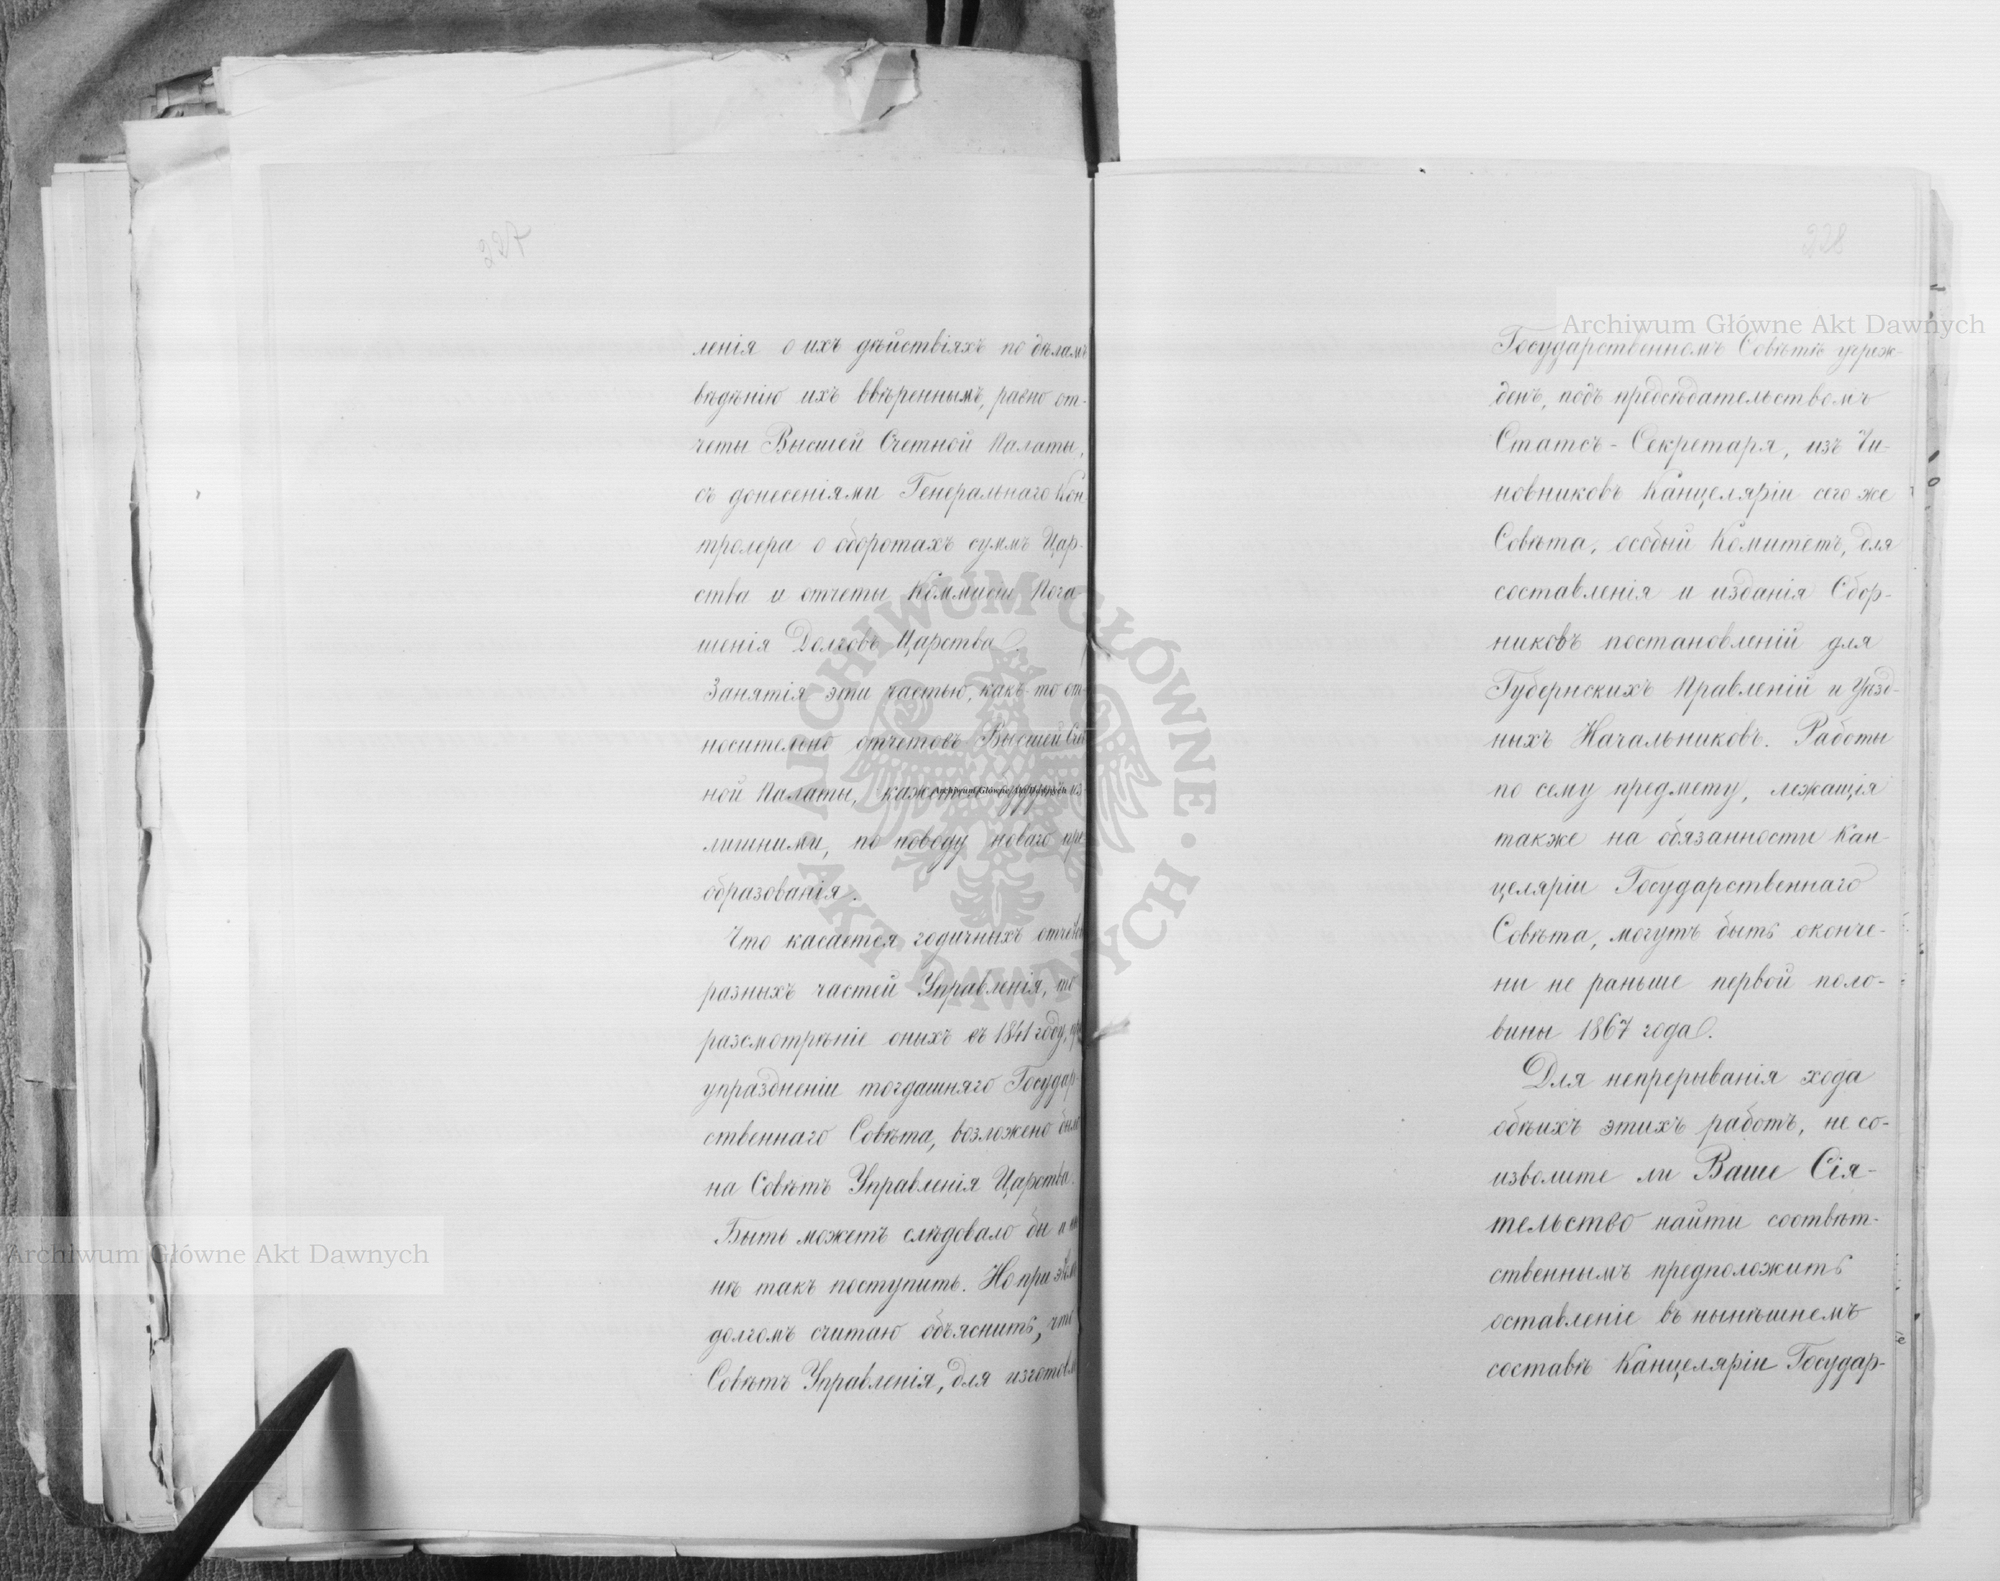 227
ленія о ихъ дѣйствіяхъ по дѣламъ
вѣдѣнію ихъ ввѣреннымъ, равно от-
четы Высшей Счетной Палаты,
съ донесеніями Генеральнаго Кон
тролера о оборотахъ суммъ Цар-
ства и отчеты Коммисіи Пога
шенія Долговъ Царства.
Занятія эти частью, какъ-то от-
носительно отчетовъ Высшей Счет
ной Палаты, кажется будутъ из
лишними, по поводу новаго пре
образованія.
Что касается годичныхъ отчетовъ
разныхъ частей Управленія, то
разсмотрѣніе оныхъ въ 1841 году, при
упраздненіи тогдашняго Государ-
ственнаго Совѣта, возложено было
на Совѣтъ Управленія Царства.
Быть можетъ слѣдовало бы и ны
нѣ такъ поступить. Но при этомъ
долгомъ считаю объяснить, что
Совѣтъ Управленія, для изготовле
228
Государственномъ Совѣтѣ учреж-
денъ, подъ предсѣдательствомъ
Статсъ-Секретаря, изъ Чи-
новниковъ Канцеляріи сего же
Совѣта, особый Комитетъ, для
составленія и изданія Сбор-
никовъ постановленій для
Губернскихъ Правленій и Уѣзд-
ныхъ Начальниковъ. Работы
по сему предмету, лежащія
также на обязанности Кан-
целяріи Государственнаго
Совѣта, могутъ быть оконче-
ны не раньше первой поло-
вины 1867 года.
Для непрерыванія хода
обѣихъ этихъ работъ, не со-
изволите ли Ваше Сія-
тельство найти соотвѣт-
ственнымъ предположить
оставленіе въ нынѣшнемъ
составѣ Канцеляріи Государ-
Archiwum Główne Akt Dawnych
Archiwum Główne Akt Dawnych
Archiwum Główne Akt Dawnych
ARCHIWUM GŁÓWNE • AKT DAWNYCH •